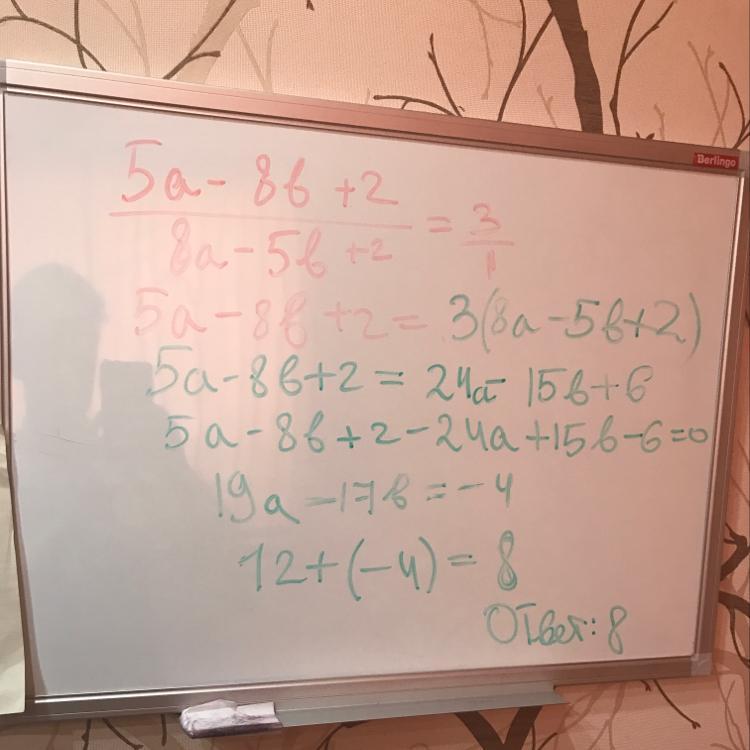 Berlingo
5a - 8b + 2
8a - 5b + 2
= 3
1
5a - 8b + 2 = 3(8a - 5b + 2)
5a - 8b + 2 = 24a - 15b + 6
5a - 8b + 2 - 24a + 15b - 6 = 0
19a - 17b = -4
12 + (-4) = 8
Ответ: 8